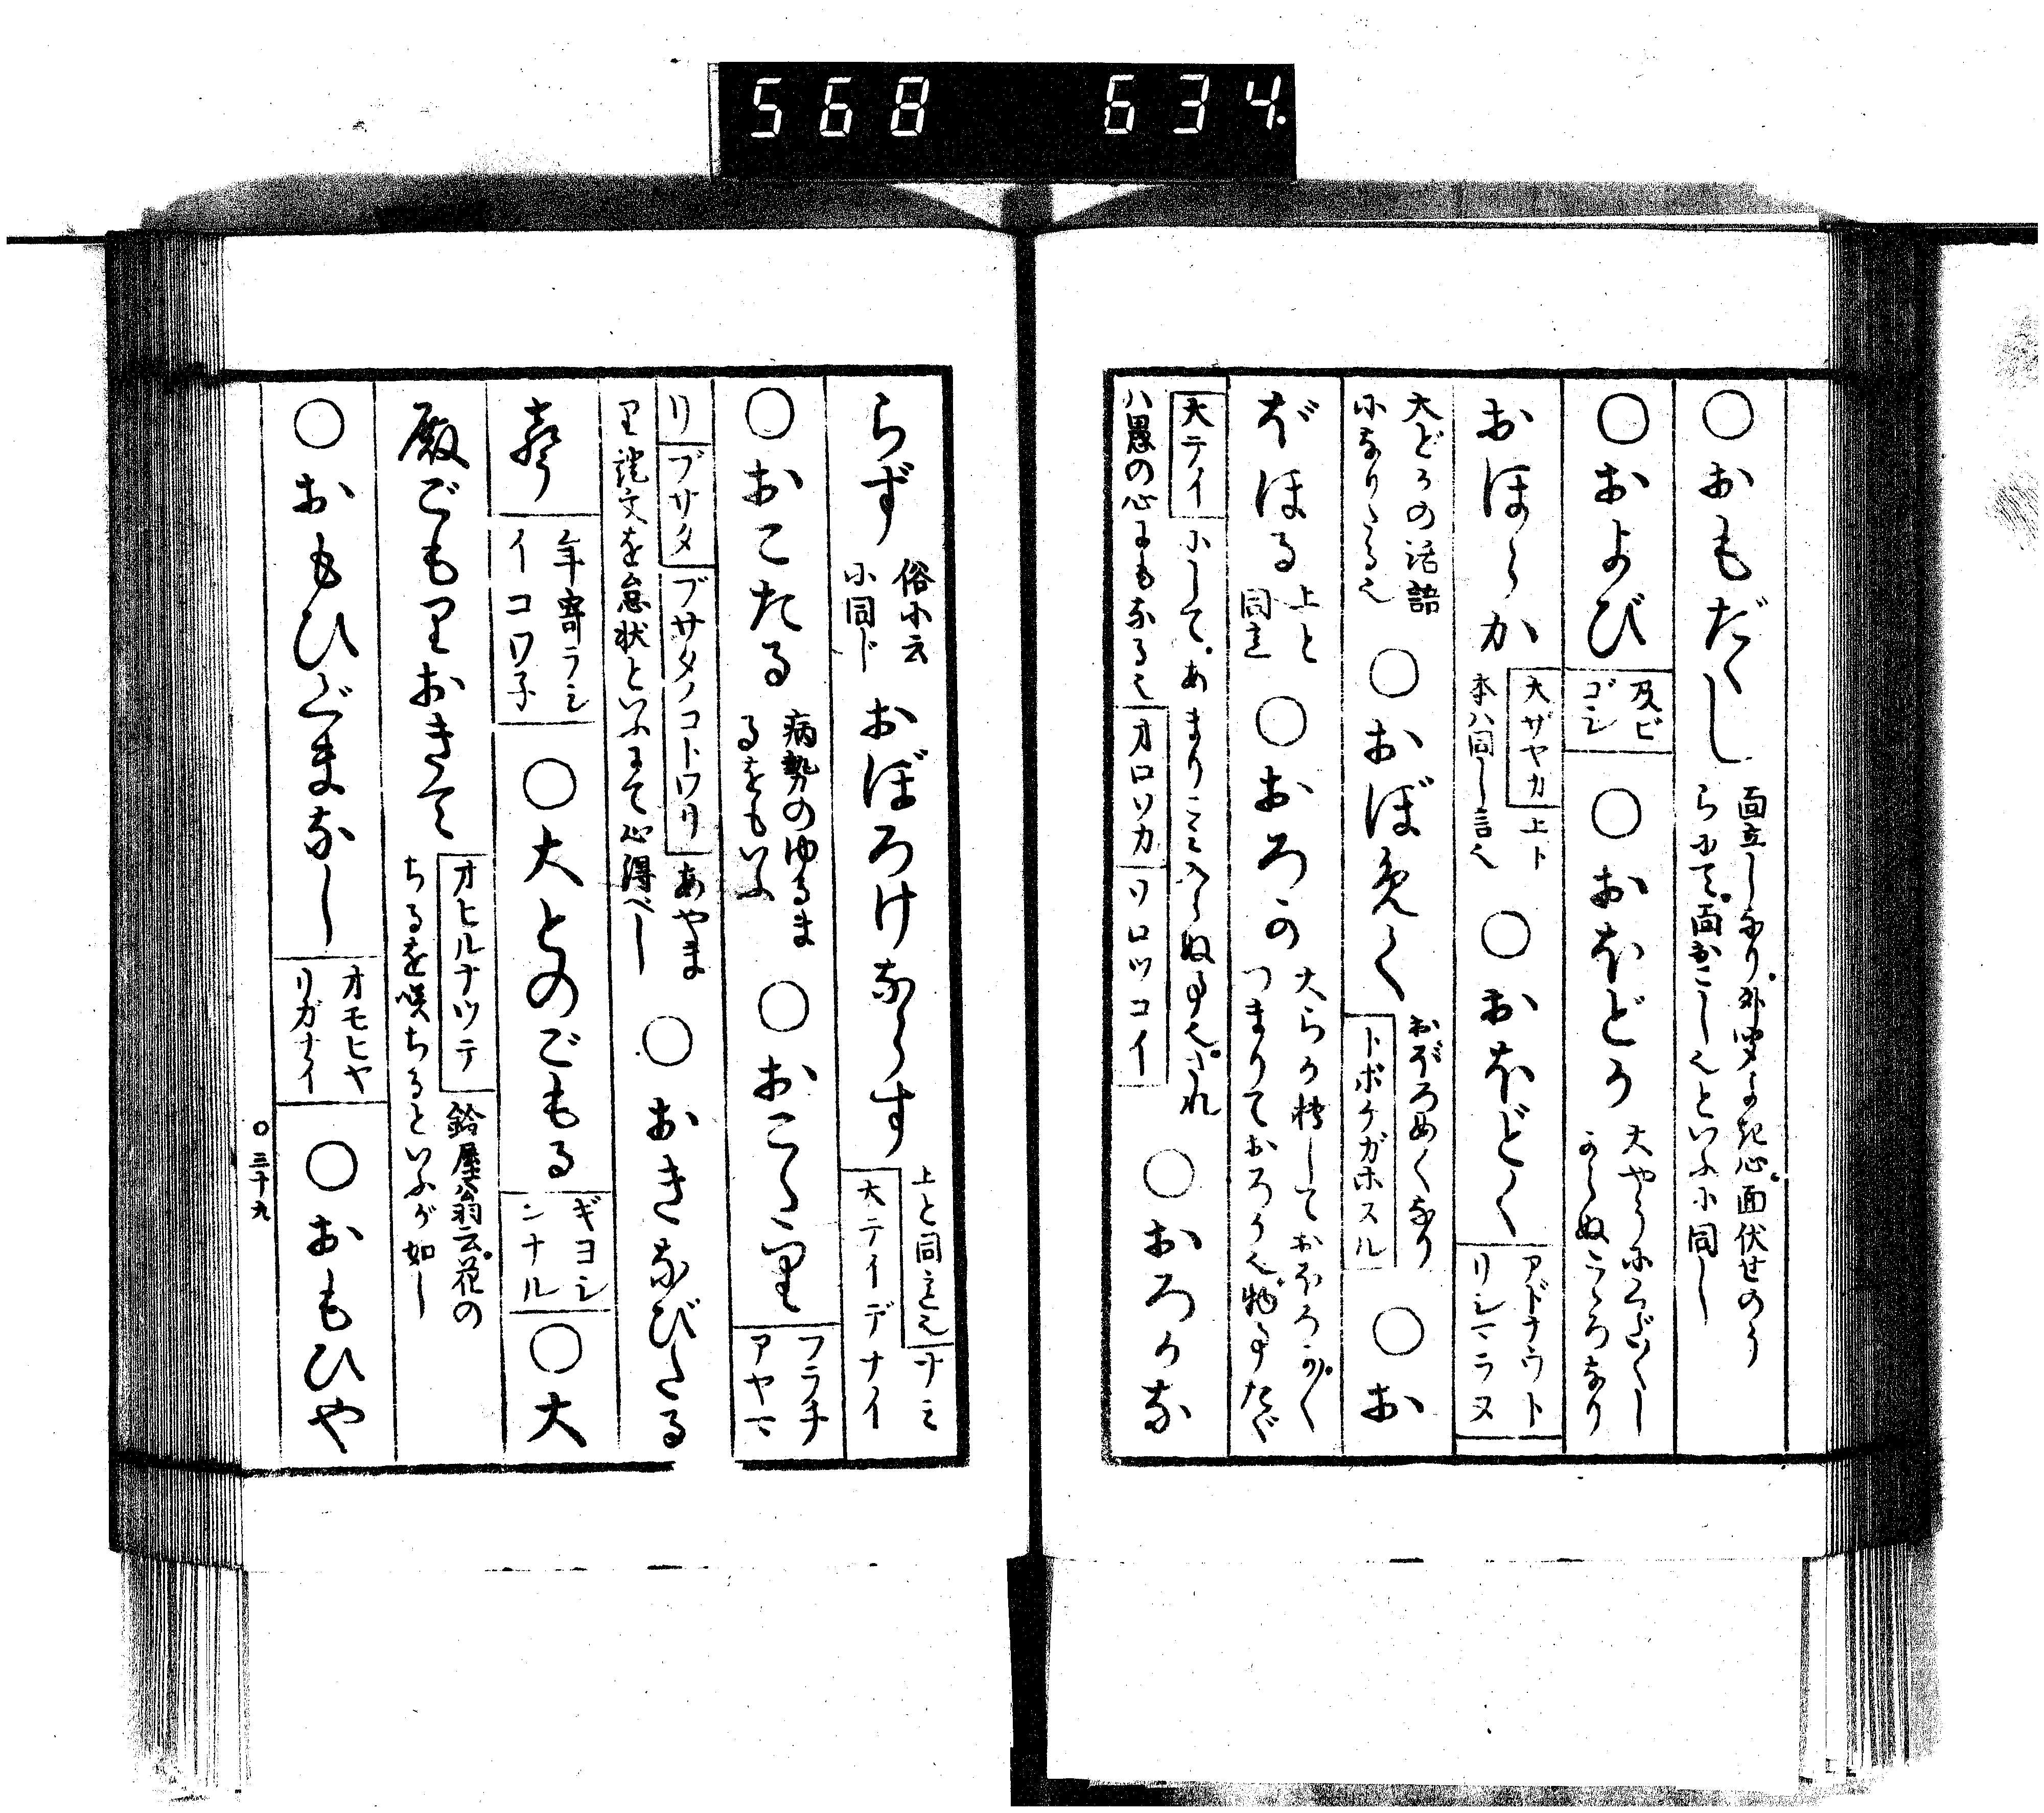 568 634.
○おもだゝし 面立しなり。外聞よき心。面伏せのう
らにて。面おこしゝといふに同し
○および 及ビ
ゴシ ○おほどか 大やうにくだ〳〵し
からぬこゝろなり
おほらか 大ザヤカ 上ト
本ハ同し言也 ○おほどく アドナウト
リシマラヌ
大どかの活語
になりたる也 ○おぼめく おぼろめくなり
トボケガホスル ○お
ぼほる 上と
同意 ○おろか 大らか轉しておほろか。く
つまりておろか也。物事たゞ
大テイ にして。あまりこゝろ入らぬ事也。され
ハ愚の心にもなる也 オロソカ ソロツコイ ○おろかな
らず 俗に云
に同ド おぼろけならす 上と同意也 ナミ
大テイデナイ
○おこたる 病勢のゆるま
るをもいふ ○おこたり フラチ
アヤマ
リ ブサタ ブサタノコトワリ あやま
り詫文を怠状といふにて心得べし ○おきなびたる
聲 年寄ラシ
イコワ子 ○大とのごもる ギヨシ
ンナル ○大
殿ごもりおきて オヒルナツテ 鈴屋翁云。花の
ちるを咲ちるといふが如し
○おもひぐまなし オモヒヤ
リガナイ ○おもひや
○三十九